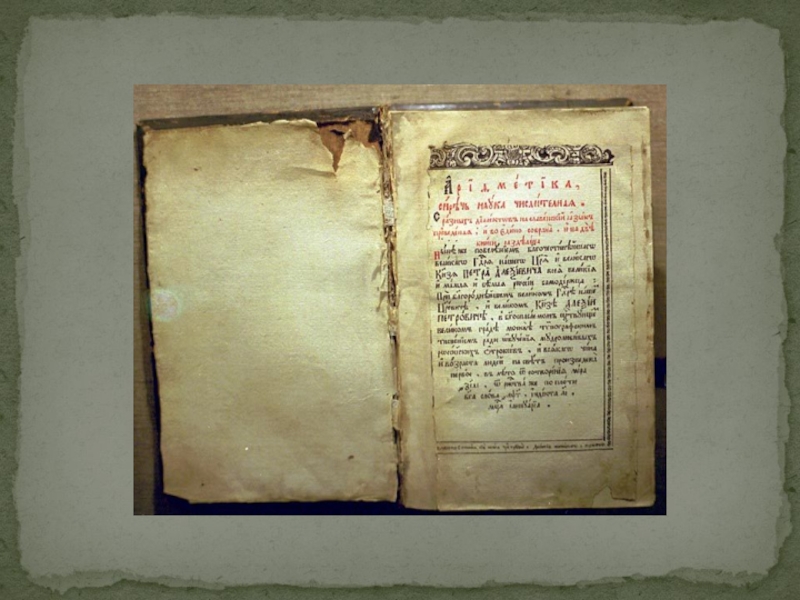 Арїѳметїка,
сирѣчь наука числителная.
С разныхъ дїалектовъ на славенскїй языкъ
преведеная, и во едино собрана, и на двѣ
книги раздѣлена
Нынѣ же повелѣнїемъ благочестивѣйшаго
великаго Гдря нашего Цря и великаго
Кнзя Петра Алеѯїевича всея великїя
и малыя и бѣлыя россїи самодержца:
При благороднѣйшемъ великомъ Гдрѣ нашемъ
Цревичѣ, и великомъ Кнзѣ Алеѯїи
Петровичѣ, в богоспасаемомъ црствующемъ
великомъ градѣ москвѣ тѵпографскимъ
тисненїемъ ради обученїя мудролюбивыхъ
россїйскихъ отроковъ, и всякаго чина
и возраста людей на свѣтъ произведена
первое, въ лѣто ѿ сотворенїя мїра
ѿ ржтва же по плоти
бга слова ҂аѱг, індїкта аі,
мца іаннуарїа.